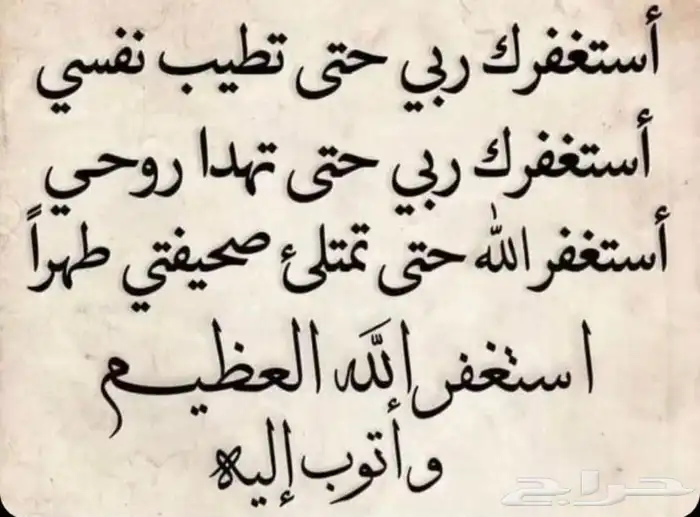 أستغفرك ربي حتى تطيب نفسي
أستغفرك ربي حتى تهدا روحي
أستغفر الله حتى تمتلئ صحيفتي طهراً
استغفر الله العظيم
وأتوب إليه
حراج